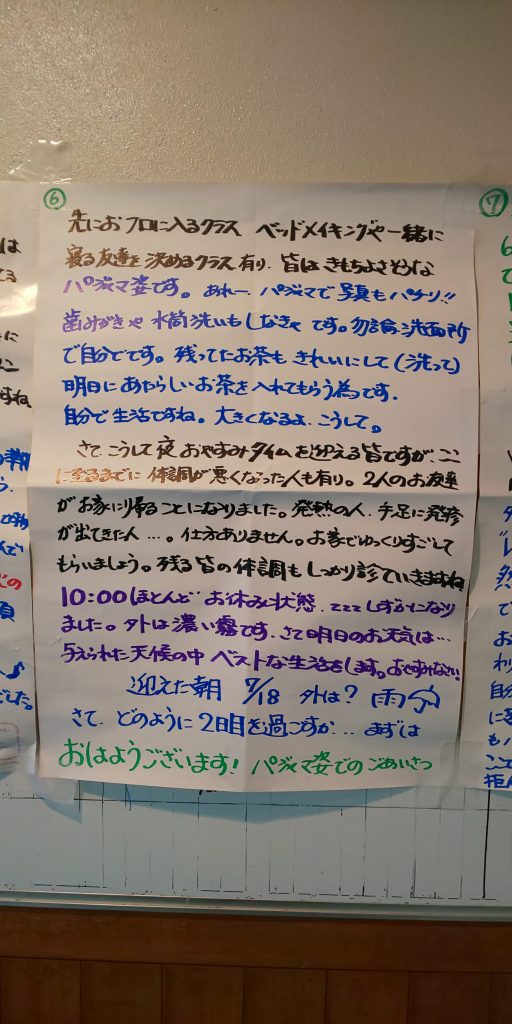 ⑥
先におフロに入るクラス ベッドメイキングや一緒に
寝る友達を決めるクラス有り、皆はきもちよさそうな
パジャマ姿です。あれー、パジャマで写真もパチリ!!
歯みがきや水筒洗いもしなきゃです。勿論洗面所
で自分でです。残ってたお茶もきれいにして(洗って)
明日にあたらしいお茶を入れてもらう為です。
自分で生活ですね。大きくなるよ、こうして。
さてこうして夜おやすみタイムを迎える皆ですが、ここ
に至るまでに体調が悪くなった人も有り。2人のお友達
がお家に帰ることになりました。発熱の人、手足に発疹
が出てきた人…。仕方ありません。お家でゆっくりすごして
もらいましょう。残る皆の体調もしっかり診ていきますね
10:00ほとんどお休み状態、zzzしずかになり
ました。外は濃い霧です。さて明日のお天気は…
与えられた天候の中ベストな生活をします。おやすみなさい
迎えた朝 7/18 外は? 雨
さて、どのように2日目を過ごすか… まずは
おはようございます! パジャマ姿でのごあいさつ
⑦